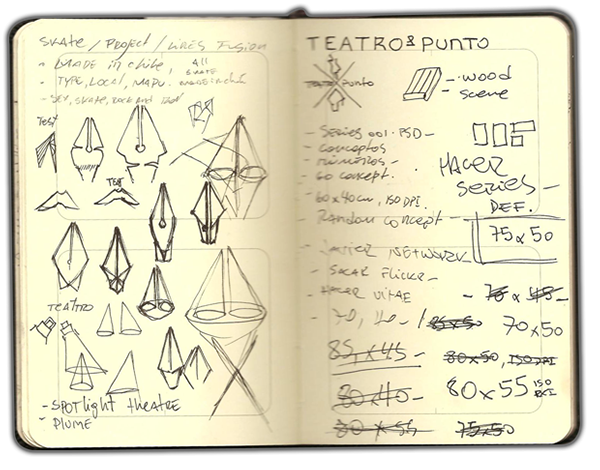 SKATE / PROJECT / LIRES FUSION
- MADE in chile, All SKATE
- TYPE, LOCAL, MAPU.
- SEX, SKATE, ROCK AND
TEST
TEST
TEATRO
- SPOTlight theatre
- PLUME
TEATRO & PUNTO
TEATRO PUNTO
- wood
- scene
- SERIES 001. PSD -
- CONCEPTOS
- NUMEROS -
- GO CONCEPT.
- 60x40cm, 150 DPI.
- RANDOM CONCEPT -
HACER SERIES -
DEF.
75x50
- JAVIER NETWORK
- SACAR FLICKR -
- HACER VITAE
- 70 x 45 -
- 70, 40 - / 85x5
70x50
85,x45 -
80x50, 150 DPI
80x40 -
80x55 150 DPI
80 x 55
75x50